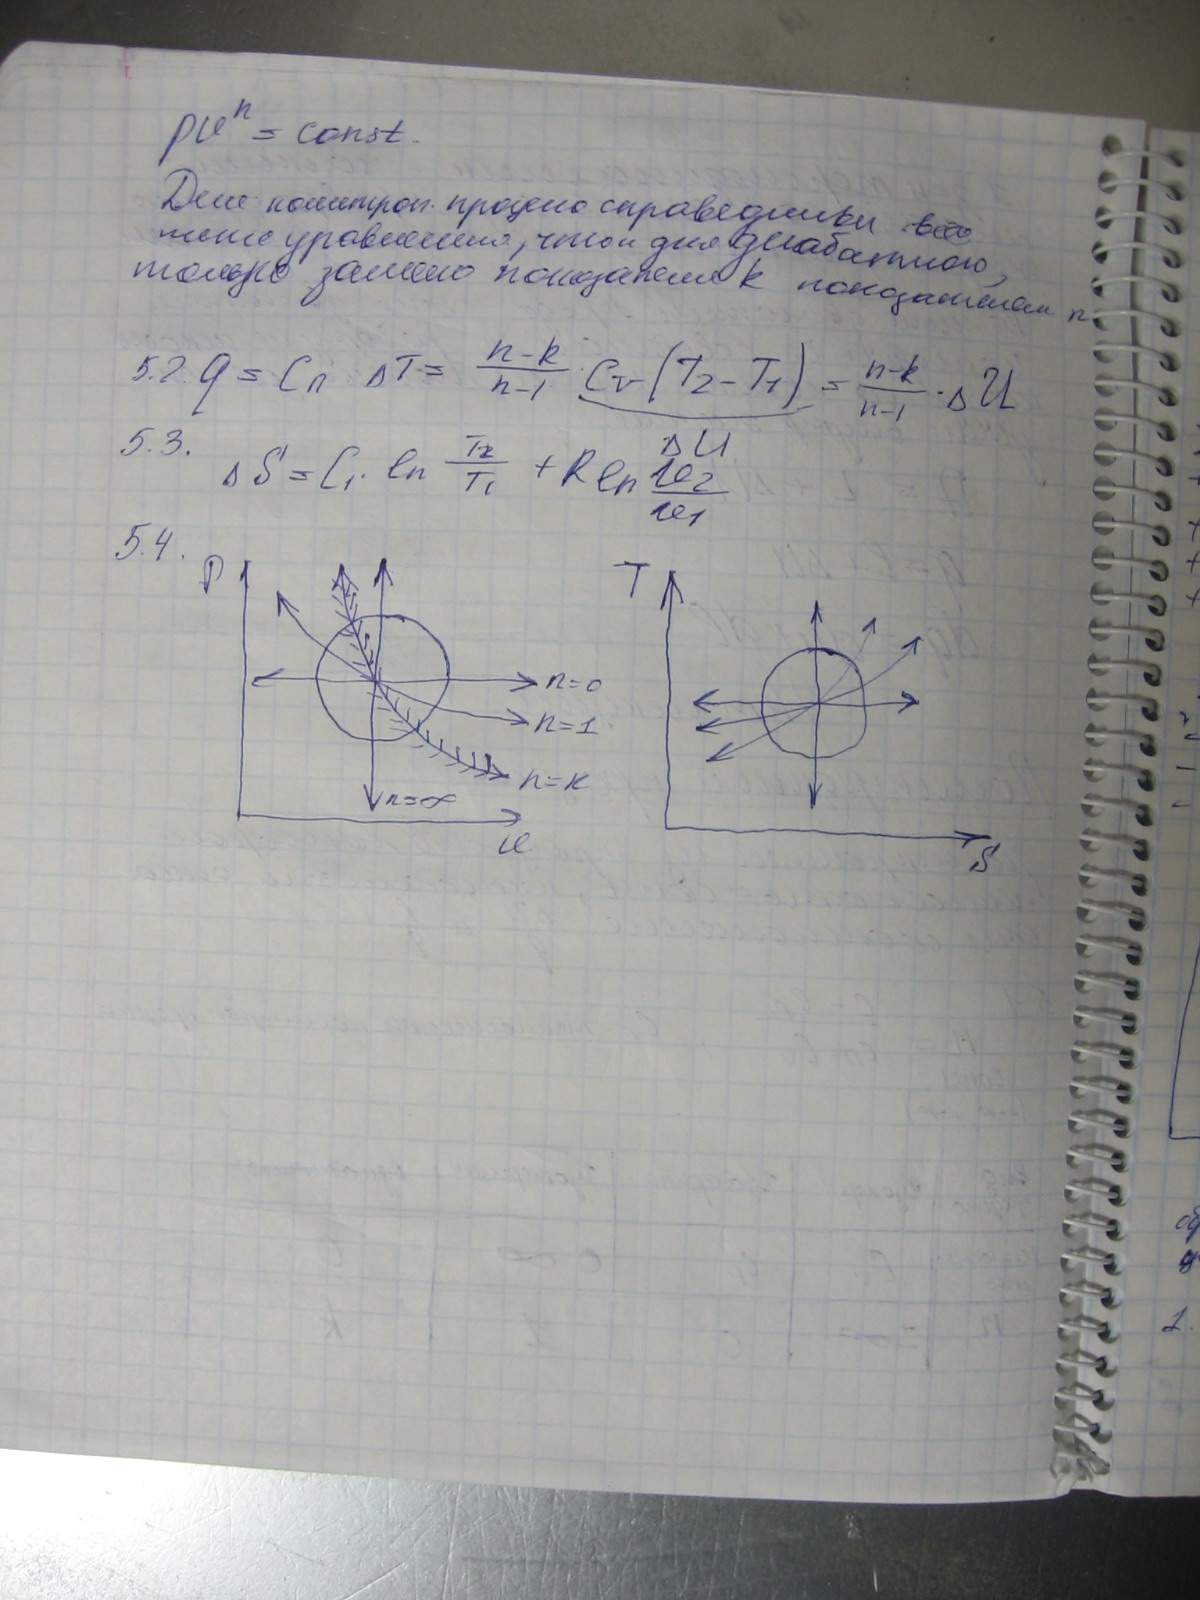 pv^n = const.
Для политроп. процесса справедливы все
теже уравнения, что и для адиабатного,
только замена показателя k показателем n
5.2. q = Cn · ΔT = (n-k)/(n-1) · Cv (T2 - T1) = (n-k)/(n-1) · ΔU
ΔU
5.3. ΔS = C1 · ln T2/T1 + R ln v2/v1
5.4.
P
T
n=0
n=1
n=k
n=∞
v
S